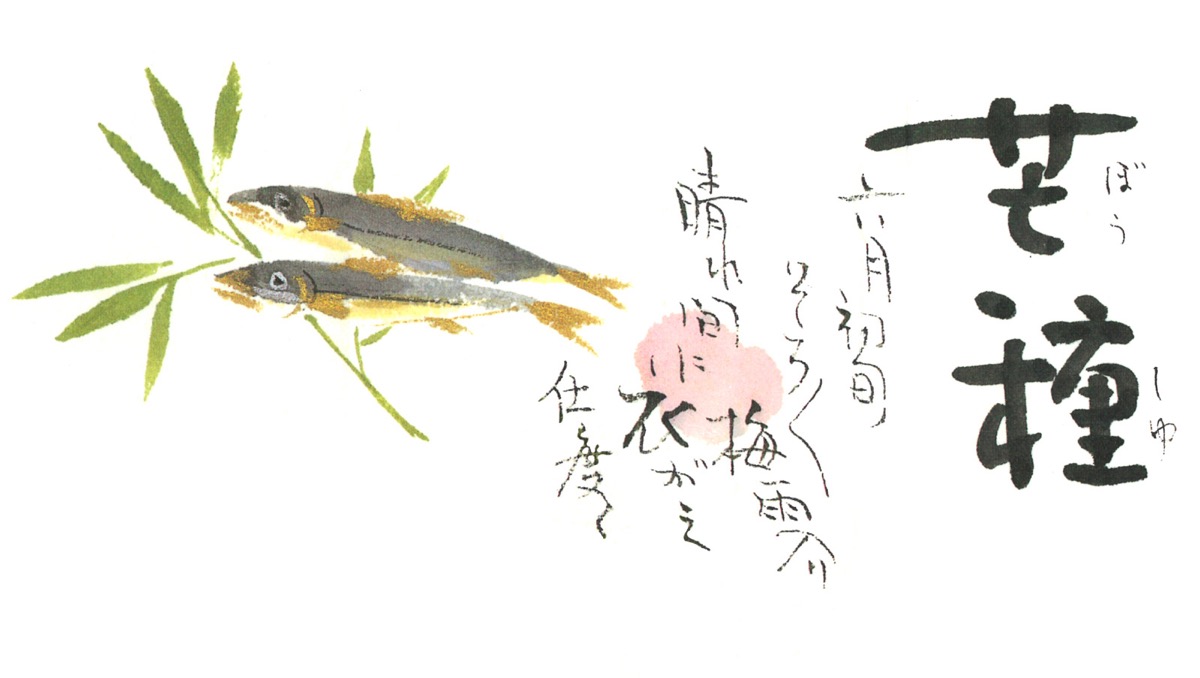 芒種
ぼうしゅ
六月初旬
そろ〱梅雨入り
晴れ間に衣がえ
仕度